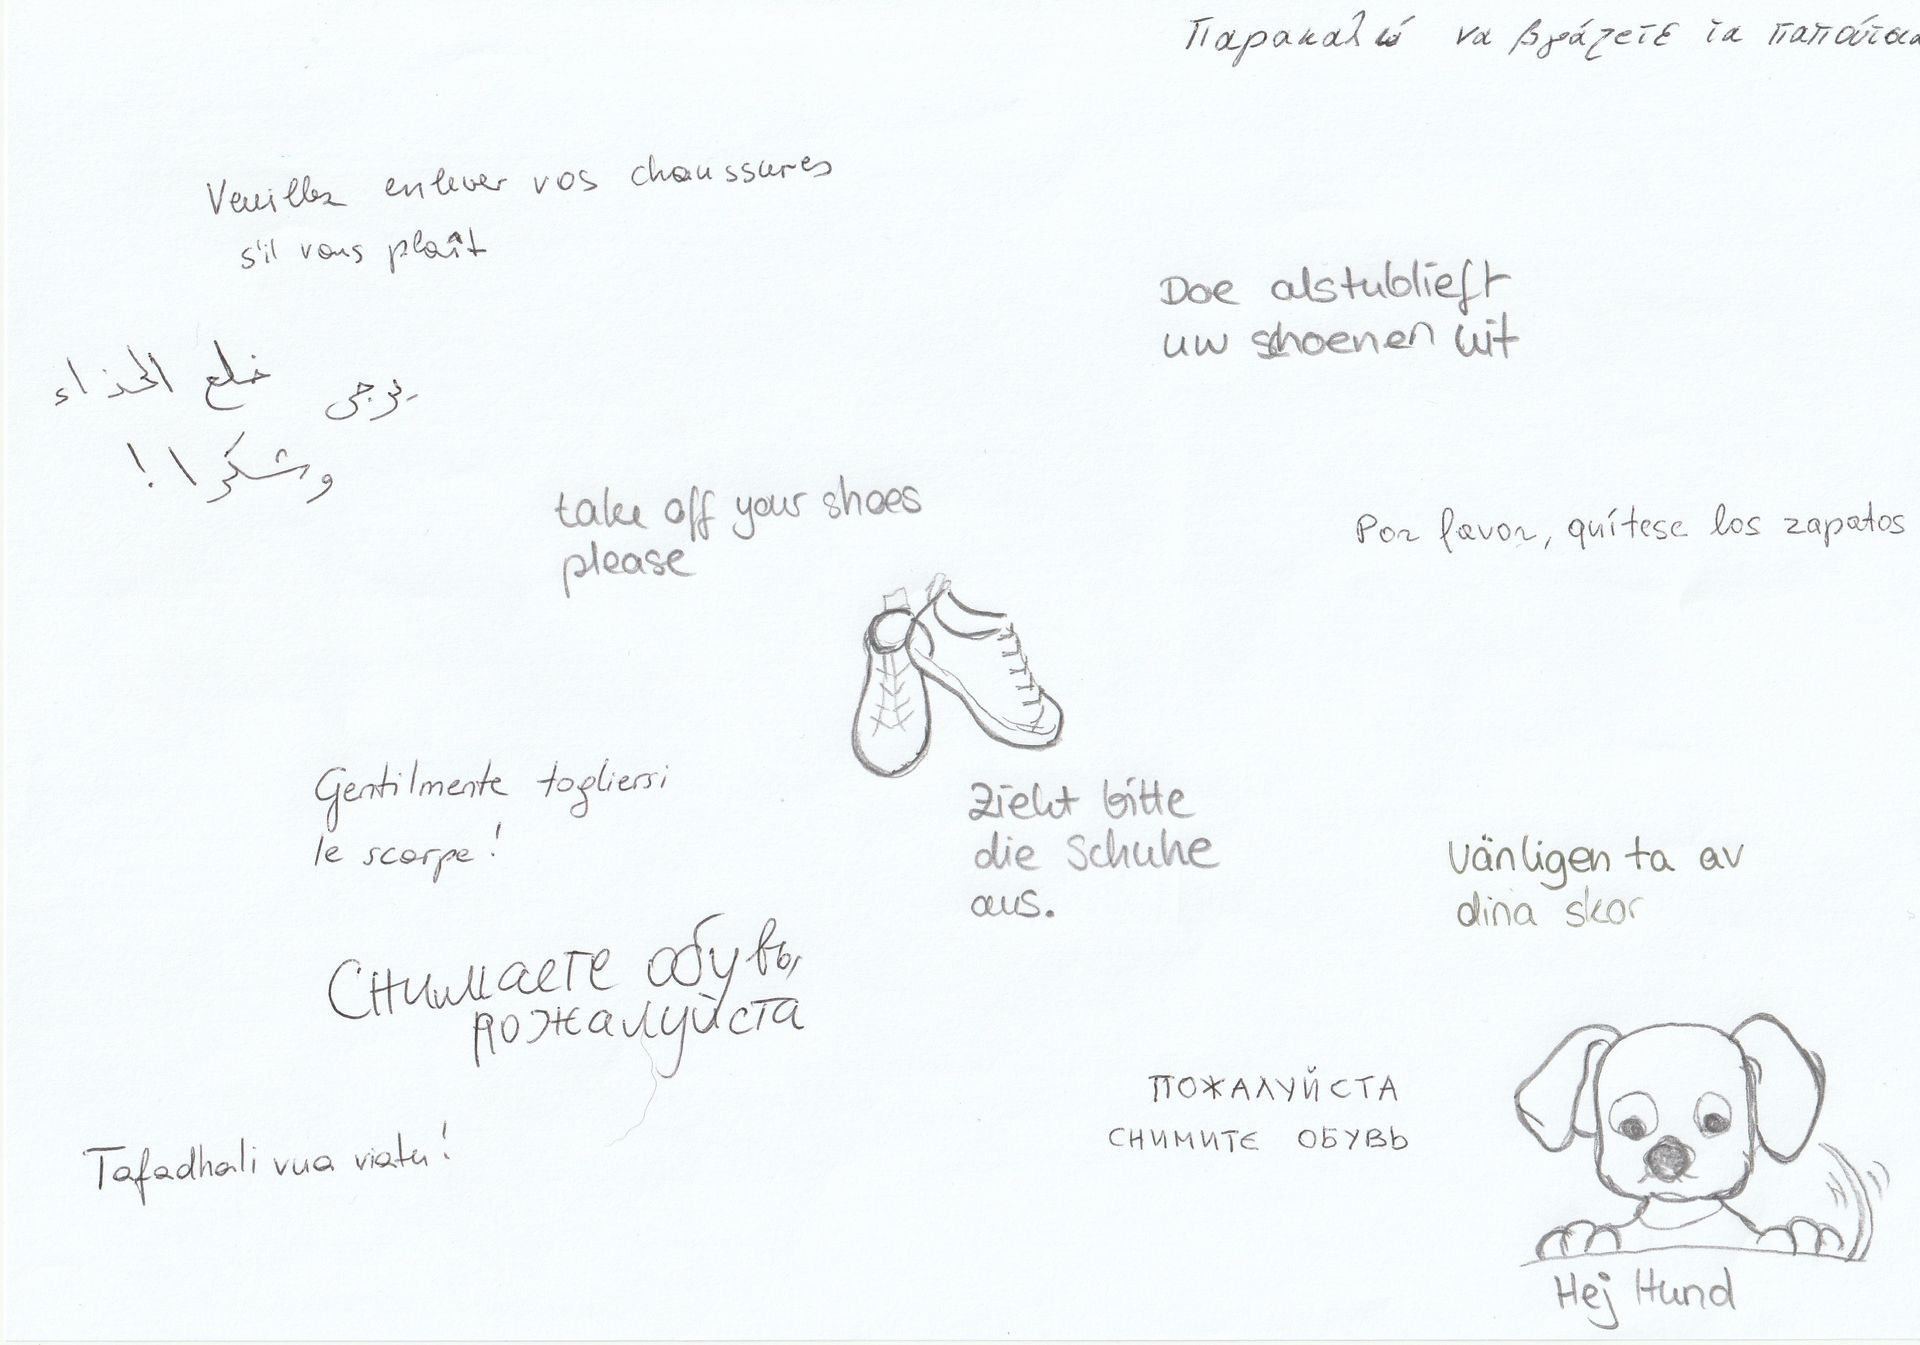 Παρακαλώ να βγάζετε τα παπούτσια
Veuillez enlever vos chaussures
s'il vous plaît
Doe alstublieft
uw schoenen uit
يرجى خلع الحذاء
وشكرا !
take off your shoes
please
Por favor, quítese los zapatos
Gentilmente togliersi
le scarpe!
Zieht bitte
die Schuhe
aus.
Vänligen ta av
dina skor
Снимаете обувь,
пожалуйста
ПОЖАЛУЙСТА
СНИМИТЕ ОБУВЬ
Tafadhali vua viatu!
Hej Hund